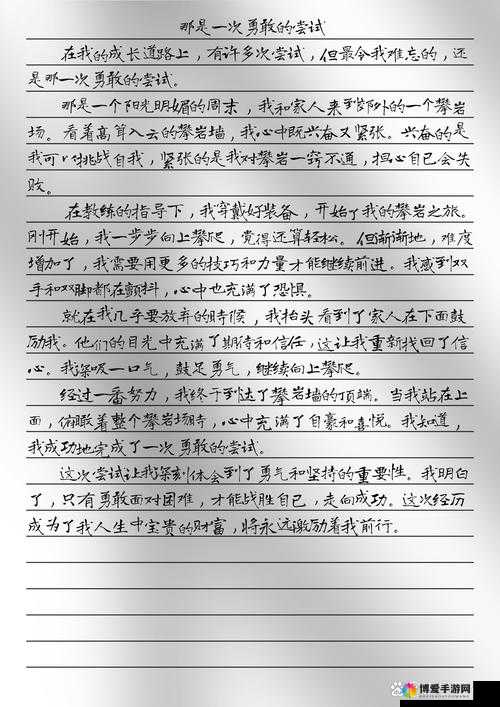 那是一次勇敢的尝试
在我的成长道路上，有许多次尝试，但最令我难忘的，还
是那一次勇敢的尝试。
那是一个阳光明媚的周末，我和家人来到郊外的一个攀岩
场。看着高耸入云的攀岩墙，我心中既兴奋又紧张。兴奋的是
我可以挑战自我，紧张的是我对攀岩一窍不通，担心自己会失
败。
在教练的指导下，我穿戴好装备，开始了我的攀岩之旅。
刚开始，我一步步向上攀爬，觉得还算轻松。但渐渐地，难度
增加了，我需要用更多的技巧和力量才能继续前进。我感到双
手和双脚都在颤抖，心中也充满了恐惧。
就在我几乎要放弃的时候，我抬头看到了家人在下面鼓
励我。他们的目光中充满了期待和信任，这让我重新找回了信
心。我深吸一口气，鼓足勇气，继续向上攀爬。
经过一番努力，我终于到达了攀岩墙的顶端。当我站在上
面，俯瞰着整个攀岩场时，心中充满了自豪和喜悦。我知道，
我成功地完成了一次勇敢的尝试。
这次尝试让我深刻体会到了勇气和坚持的重要性。我明白
了，只有勇敢面对困难，才能战胜自己，走向成功。这次经历
成为了我人生中宝贵的财富，将永远激励着我前行。
博爱手游网